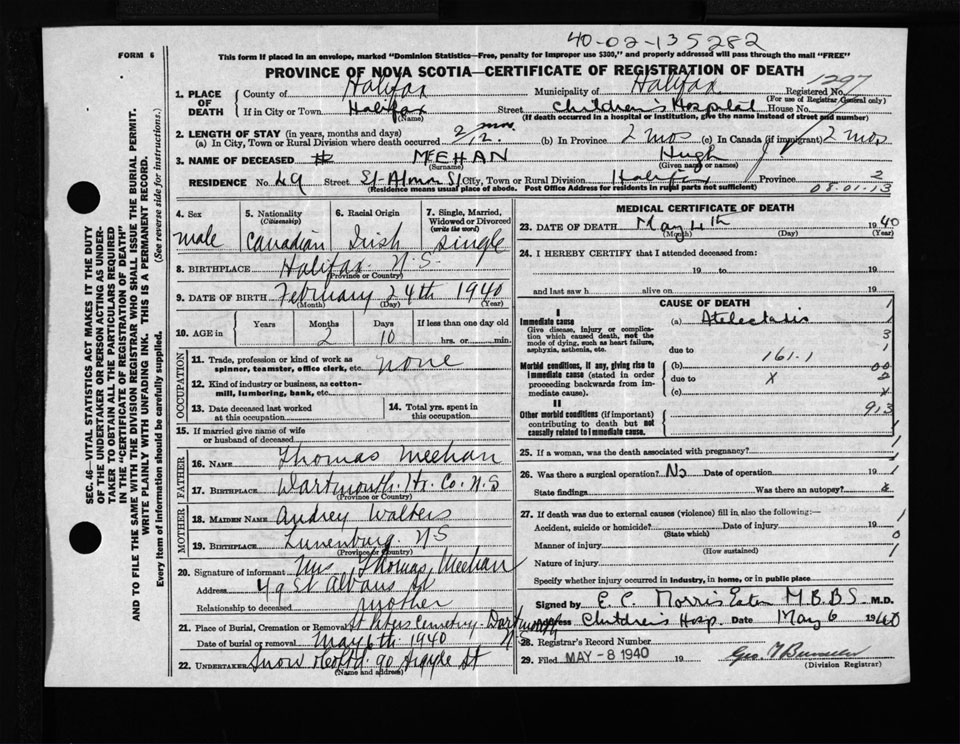 40-02-135282
FORM 6
This form if placed in an envelope, marked "Dominion Statistics—Free, penalty for improper use $300," and properly addressed will pass through the mail "FREE"
PROVINCE OF NOVA SCOTIA—CERTIFICATE OF REGISTRATION OF DEATH
1. PLACE OF DEATH
County of Halifax Municipality of Halifax Registered No. 1297
(For use of Registrar General only)
If in City or Town Halifax Street Children's Hospital House No.
(Name) (If death occurred in a hospital or institution, give the name instead of street and number)
2. LENGTH OF STAY (in years, months and days)
(a) In City, Town or Rural Division where death occurred 2 mos. (b) In Province 2 mos (c) In Canada (if immigrant) 2 mos
3. NAME OF DECEASED MEEHAN Hugh J
(Surname) (Given name or names)
RESIDENCE No. 49 Street St-Alman St City, Town or Rural Division Halifax Province 2
(Residence means usual place of abode. Post Office Address for residents in rural parts not sufficient) 08.01.13
4. Sex
male
5. Nationality (Citizenship)
Canadian
6. Racial Origin
Irish
7. Single, Married, Widowed or Divorced (write the word)
Single
8. BIRTHPLACE Halifax. N.S.
(Province or Country)
9. DATE OF BIRTH February 24th 1940
(Month) (Day) (Year)
10. AGE in Years Months Days If less than one day old
2 10 hrs. or min.
OCCUPATION
11. Trade, profession or kind of work as spinner, teamster, office clerk, etc. none
12. Kind of industry or business, as cotton-mill, lumbering, bank, etc.
13. Date deceased last worked at this occupation
14. Total yrs. spent in this occupation
15. If married give name of wife or husband of deceased
FATHER
16. NAME Thomas Meehan
17. BIRTHPLACE Dartmouth. Hx. Co. N.S
(Province or Country)
MOTHER
18. MAIDEN NAME Audrey Walters
19. BIRTHPLACE Lunenburg. N.S
(Province or Country)
20. Signature of informant Mrs Thomas Meehan
Address 49 St Albans St
Relationship to deceased mother
21. Place of Burial, Cremation or Removal St Peters Cemetery Dartmouth N.S
Date of burial or removal May 6th 1940
22. UNDERTAKER Snow & Co Ltd. 90 Argyle St
(Name and address)
MEDICAL CERTIFICATE OF DEATH
23. DATE OF DEATH May 4th 1940
(Month) (Day) (Year)
24. I HEREBY CERTIFY that I attended deceased from:
19 to 19
and last saw h alive on 19
CAUSE OF DEATH
I
Immediate cause
Give disease, injury or complication which caused death, not the mode of dying, such as heart failure, asphyxia, asthenia, etc.
(a) Atelectasis
due to
Morbid conditions, if any, giving rise to immediate cause (stated in order proceeding backwards from immediate cause).
(b) 161.1
due to X
(c)
II
Other morbid conditions (if important) contributing to death but not causally related to immediate cause.
913
25. If a woman, was the death associated with pregnancy?
26. Was there a surgical operation? No Date of operation 19
State findings Was there an autopsy?
27. If death was due to external causes (violence) fill in also the following:—
Accident, suicide or homicide? Date of injury 19
(State which)
Manner of injury
(How sustained)
Nature of injury
Specify whether injury occurred in industry, in home, or in public place
Signed by E. C. Morris Eaton M.B.B.S. M.D.
Address Children's Hosp. Date May 6 1940
28. Registrar's Record Number
29. Filed MAY -8 1940 19
(Division Registrar)
SEC. 46—VITAL STATISTICS ACT MAKES IT THE DUTY
OF THE UNDERTAKER OR PERSON ACTING AS UNDERTAKER TO OBTAIN ALL THE PARTICULARS REQUIRED
IN THE "CERTIFICATE OF REGISTRATION OF DEATH"
AND TO FILE THE SAME WITH THE DIVISION REGISTRAR WHO SHALL ISSUE THE BURIAL PERMIT.
WRITE PLAINLY WITH UNFADING INK. THIS IS A PERMANENT RECORD.
Every item of information should be carefully supplied. (See reverse side for instructions.)